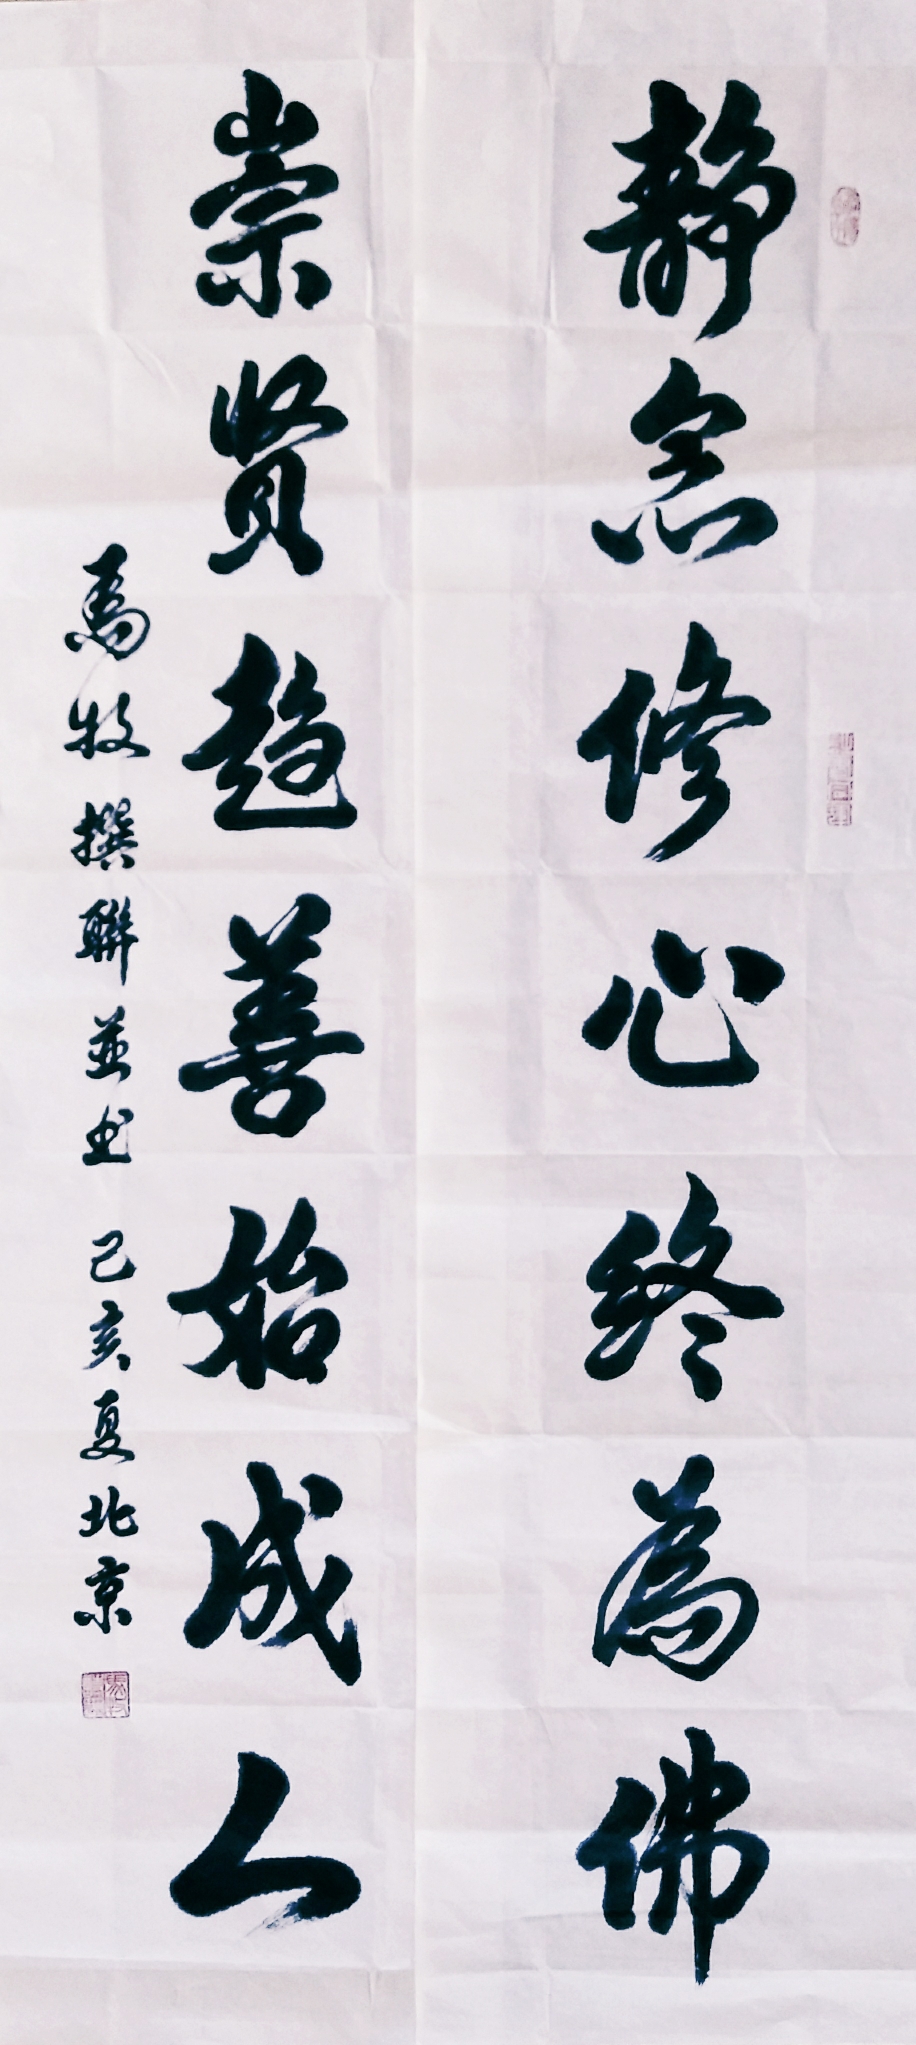 静念修心終為佛
崇贤趋善始成人
馬牧撰聯並书 己亥夏北京